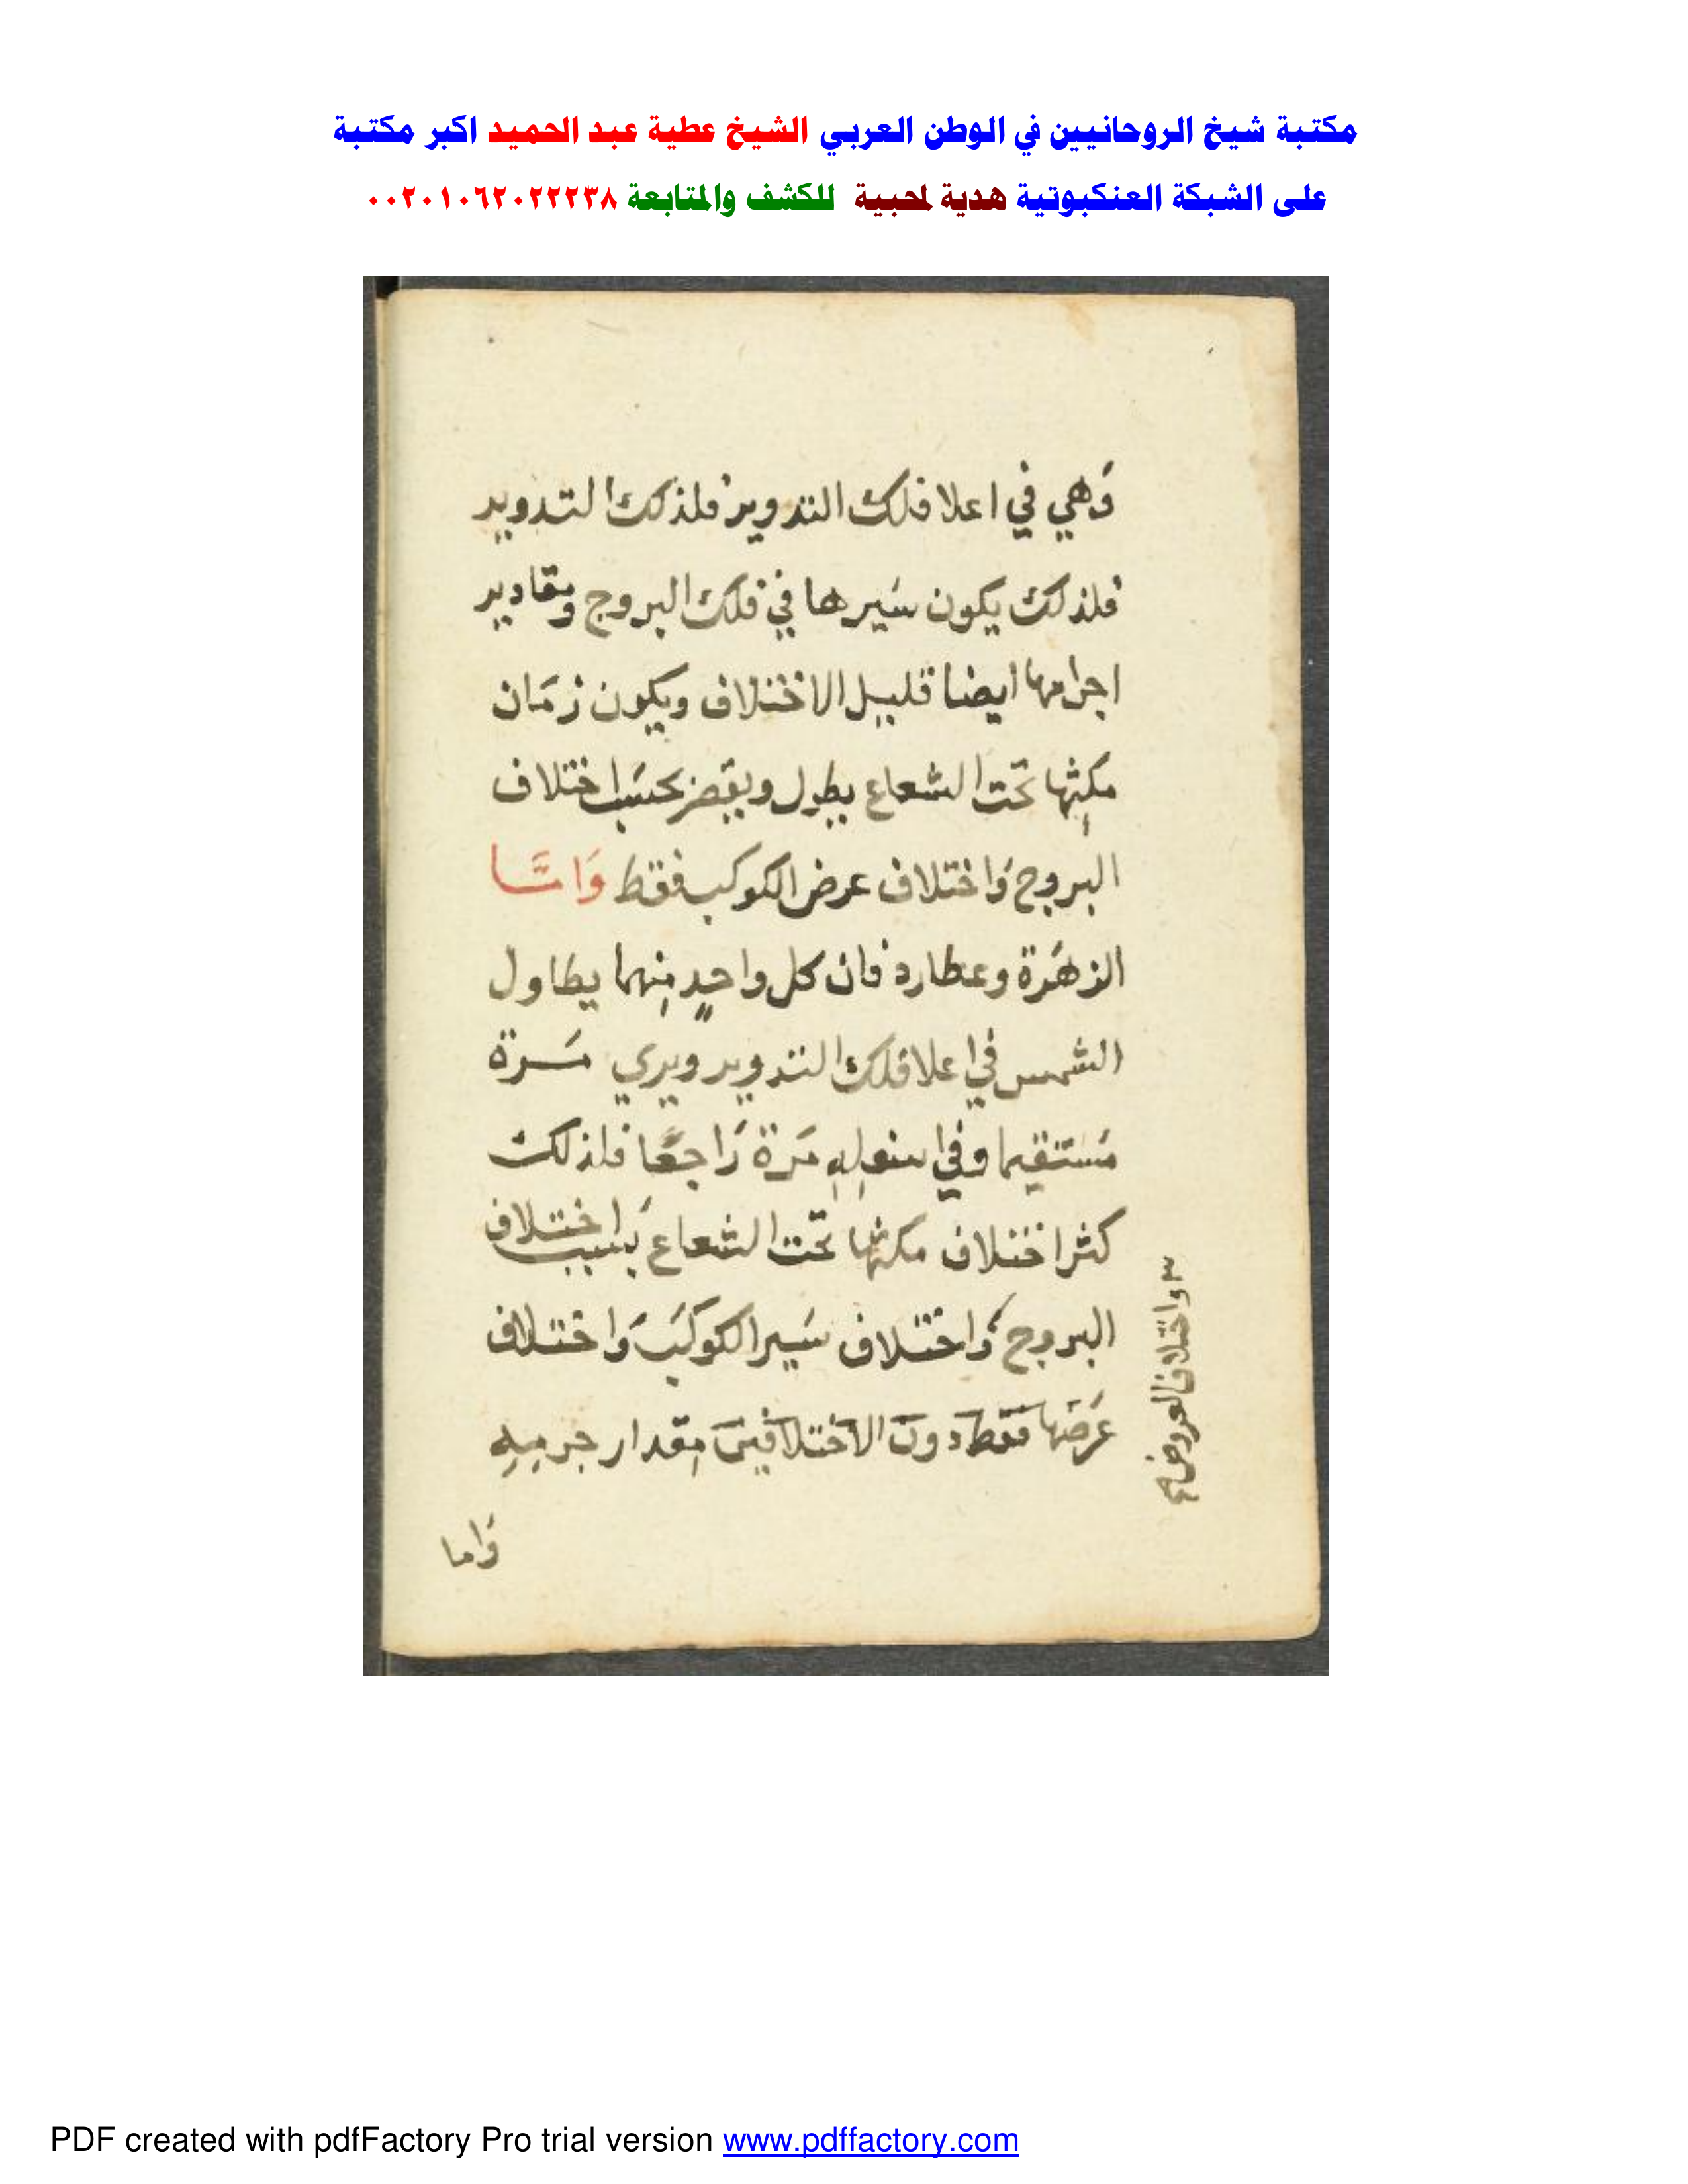 مكتبة شيخ الروحانيين في الوطن العربي الشيخ عطية عبد الحميد اكبر مكتبة
على الشبكة العنكبوتية هدية لمحبية للكشف والمتابعة ٠٠٢٠١٠٦٢٠٢٢٢٣٨
وَهي في اعلا فلك التدوير فلذلك التدوير
فلذلك يكون سَيرها في فلك البروج ومقادير
اجرامها ايضا قليل الاختلاف ويكون زمَان
مكِثها تحت الشعاع يطول ويقصر بحسَب اختلاف
البروج وَاختلاف عرض الكوكب فقط وَامَّا
الزهَرة وعطارد فان كل واحدٍ مِنهما يطاول
الشمس في اعلا فلك التدوير ويري مَرة
مَستقيما وفي اسفلِهِ مَرة رَاجعًا فلذلك
كثر اختلاف مكثها تحت الشعاع بسَبب اختلاف
البروج وَاختلاف سَير الكوكَب وَاختلاف
عَرضها فقط دون الاختلافين مِقدار جرمِهِ
واختلاف العروض
وَاما
PDF created with pdfFactory Pro trial version www.pdffactory.com